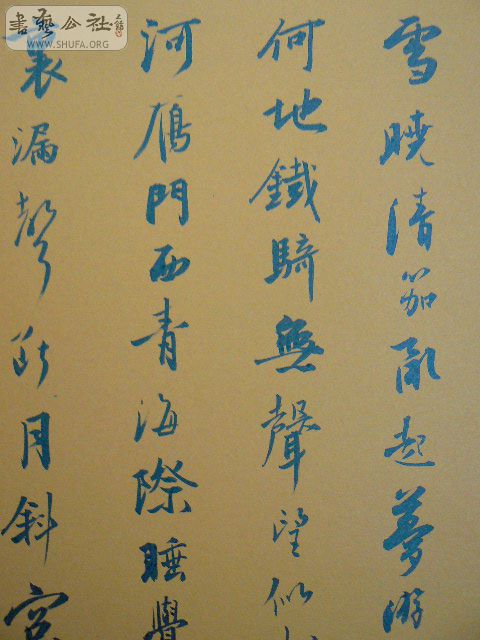 雪曉清笳亂起夢游
何地鐵騎無聲望似
河雁門西青海際睡覺
裏漏聲斷月斜窗
書藝公社
WWW.SHUFA.ORG